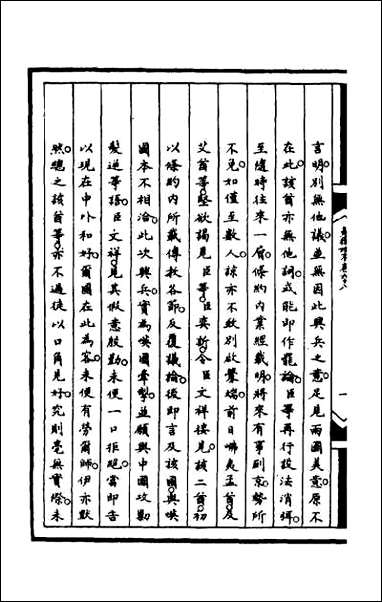 言明。別無他議。並無因此興兵之意。足見兩國美意。原不
在此。該酋亦無他詞。或能即作罷論。臣等再行設法消弭。
至隨時往來一層。條約內業經載明。將來有事到京。勢所
不免。如僅至數人。諒亦不致別啟釁端。前日㗶夷孟酋。及
艾酋等。堅欲謁見臣等。臣奕訢令臣文祥接見。該二酋初
以條約內所載傳教各節。反覆議論。後即言及該國與㗶
國本不相洽。此次興兵。實為㗶國牽掣。並願與中國攻勦
髮逆等語。臣文祥見其假意殷勤。未便一口拒絕。當即告
以現在中外和好。爾國在此為客。未便有勞爾師。伊亦默
然。總之該酋等。亦不過徒以口角見好。究則毫無實際。未